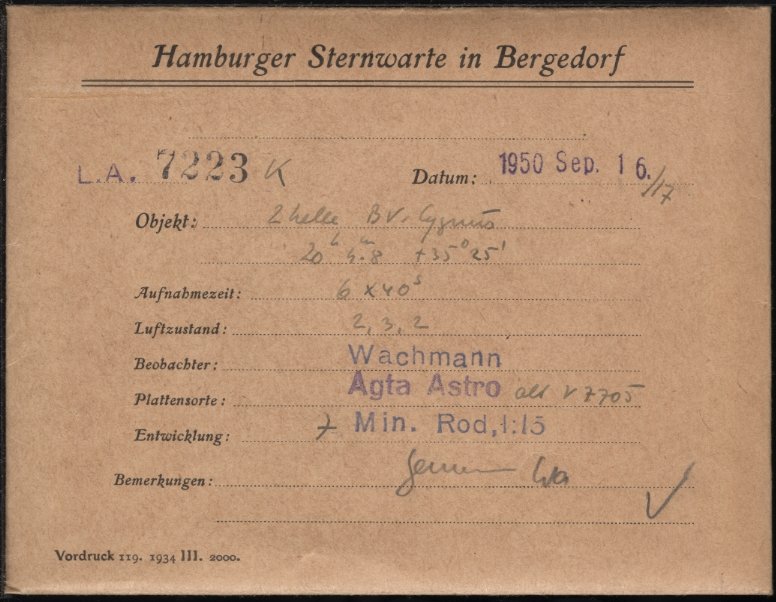 Hamburger Sternwarte in Bergedorf
L.A. 7223 K Datum: 1950 Sep. 16./17
Objekt: 2 helle BV. Cygnus
20h 4m.8 +35° 25'
Aufnahmezeit: 6 x 40s
Luftzustand: 2, 3, 2
Beobachter: Wachmann
Plattensorte: Agfa Astro alt V7705
Entwicklung: 7 Min. Rod, 1:15
Bemerkungen: Wa
Vordruck 119. 1934 III. 2000.